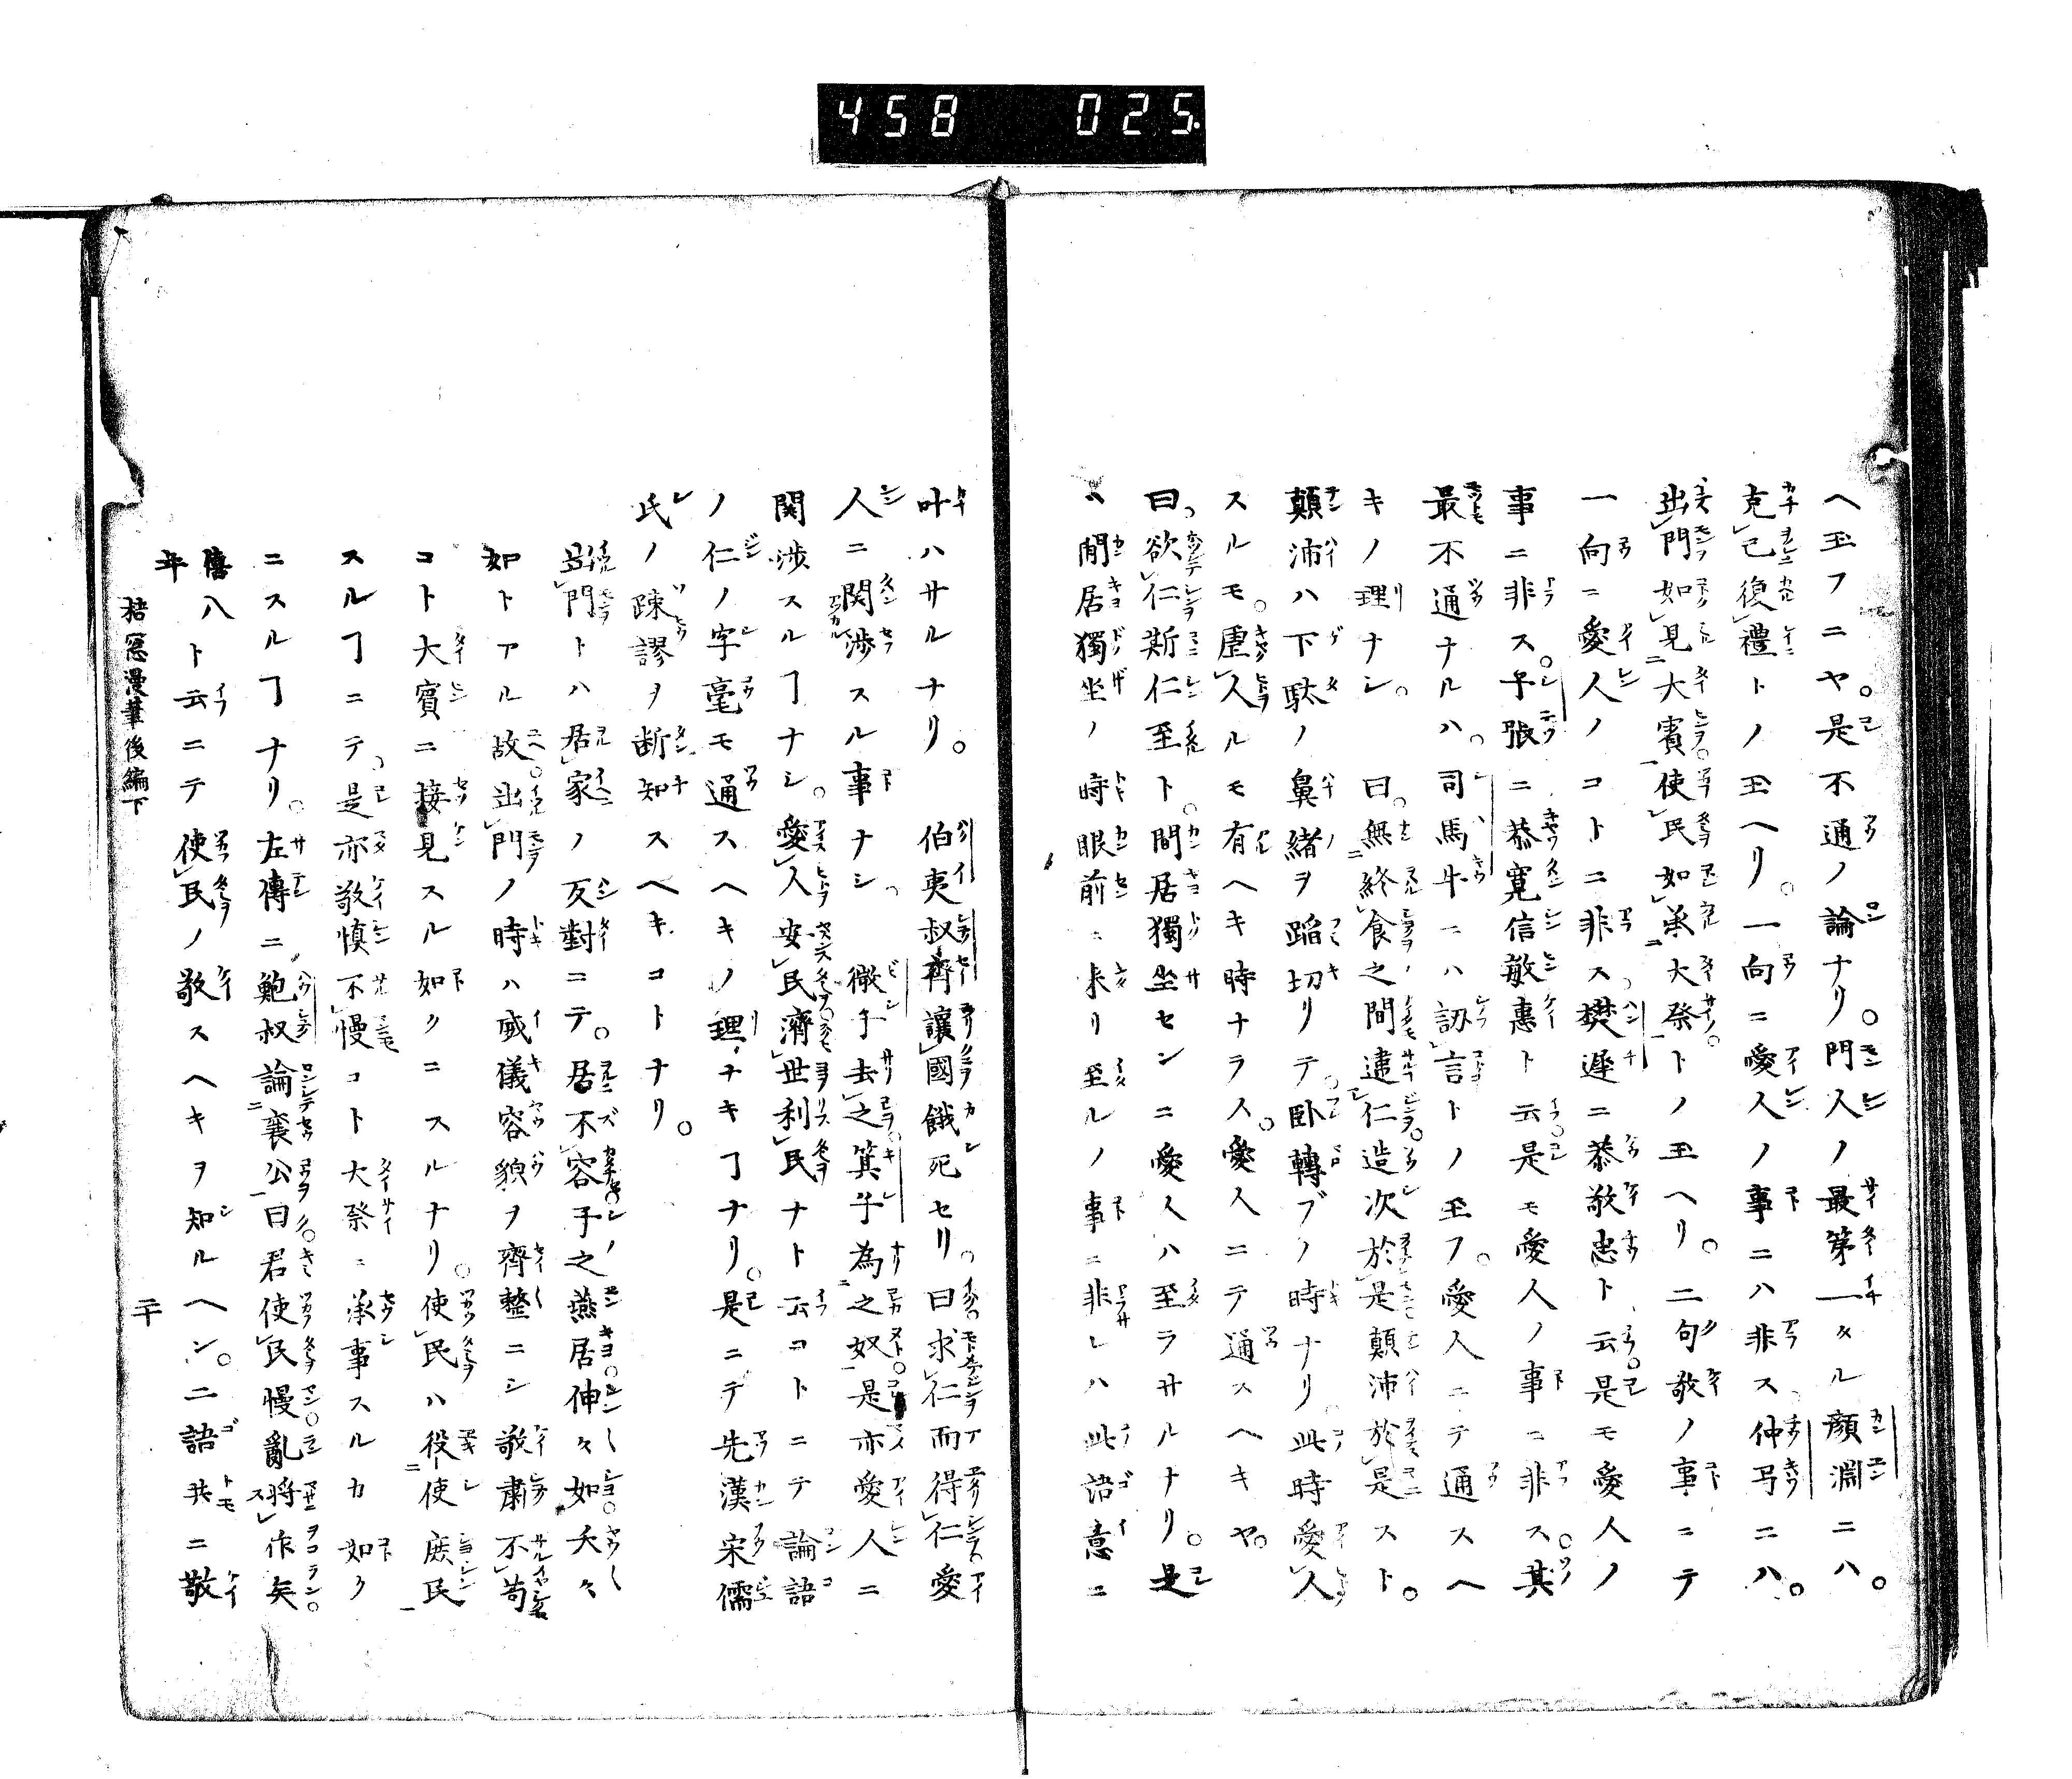 458 025
ヘ玉フニヤ。是不通ノ論ナリ。門人ノ最第一タル顔淵ニハ。
克己復禮トノ玉ヘリ。一向ニ愛人ノ事ニハ非ス。仲弓ニハ。
出門如見大賓。使民如承大祭トノ玉ヘリ。二句敬ノ事ニテ
一向ニ愛人ノコトニ非ス。樊遲ニ恭敬忠ト云。是モ愛人ノ
事ニ非ス。子張ニ恭寛信敏惠ト云。是モ愛人ノ事ニ非ス。其
最不通ナルハ。司馬牛ニハ訒言トノ玉フ。愛人ニテ通スヘ
キノ理ナシ。曰。無終食之間違仁造次於是顛沛於是スト。
顛沛ハ下駄ノ鼻緒ヲ蹈切リテ。卧轉ブノ時ナリ。此時愛人
スルモ。虐人ルモ有ヘキ時ナラス。愛人ニテ通スヘキヤ。
曰。欲仁斯仁至ト。間居獨坐センニ愛人ハ至ラサルナリ。是
ヽ間居獨坐ノ時眼前ニ来リ至ルノ事ニ非レハ此語意ニ
叶ハサルナリ。伯夷叔齊讓國餓死セリ。曰求仁而得仁愛
人ニ関渉スル事ナシ。微子去之箕子為之奴是亦愛人ニ
関渉スルヿナシ。愛人安民濟世利民ナト云コトニテ論語
ノ仁ノ字毫モ通スヘキノ理ナキヿナリ。是ニテ先漢宋儒
氏ノ疎謬ヲ断知スヘキコトナリ。
出門トハ居家ノ反對ニテ。居不容子之燕居伸々如夭々
如トアル故。出門ノ時ハ威儀容貌ヲ齊整ニシ敬肅不苟
コト大賓ニ接見スル如クニスルナリ。使民ハ役使庶民
スルヿニテ。是亦敬慎不慢コト大祭ニ承事スルカ如ク
ニスルヿナリ。左傳ニ鮑叔論襄公曰君使民慢亂將作矣
僖八年ト云ニテ使民ノ敬スヘキヲ知ルヘシ。二語共ニ敬
梧窓漫筆後編下 二十